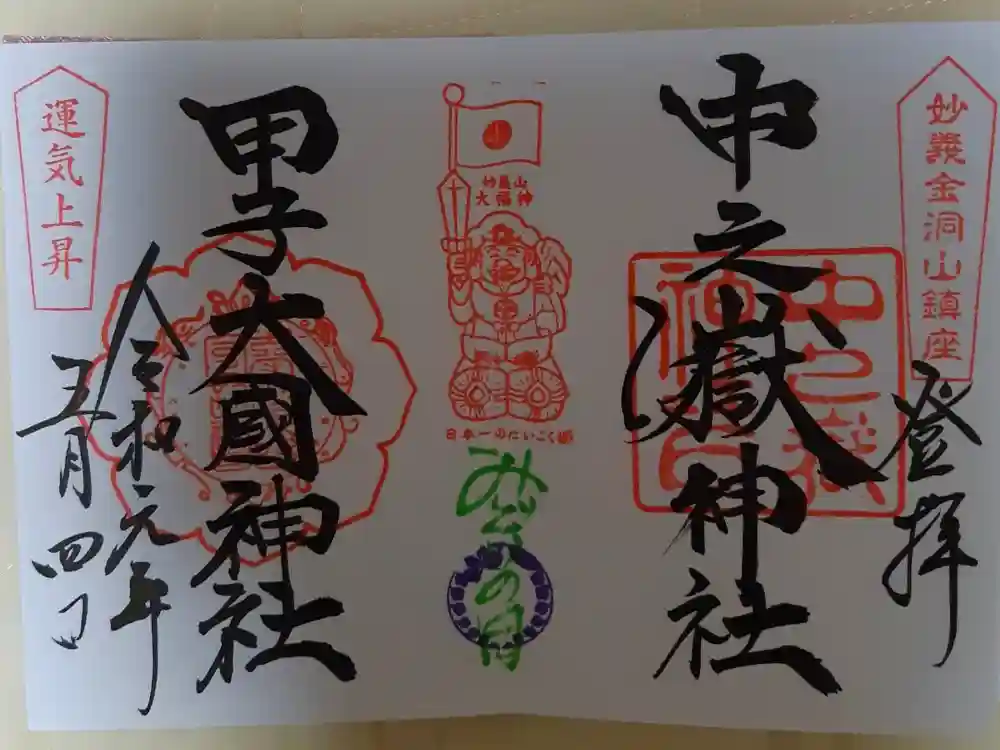 妙義金洞山鎮座
登拝
中之嶽神社
妙義山
大福神
日本一のだいこく様
みどりの日
甲子大國神社
運気上昇
令和元年
五月四日